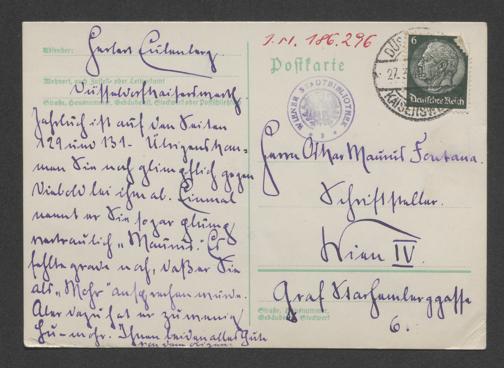 Absender: Herbert Eulenberg
Wohnort, auch Zustell- oder Leitpostamt
Düsseldorf-Kaiserswerth
Straße, Hausnummer, Gebäudeteil, Stockwerk oder Postschließfach
Jährlich ist auf den Seiten
129 und 131. Übrigens kom-
men Sie noch glimpflich gegen
Diebold bei ihm ab. Einmal
nennt er Sie sogar
vertraulich „Maurus". Es
fehlte grade noch, daß er Sie
als „Mohr" ansprechen würde.
Aber dazu hat er zu wenig
Hu-mohr. Ihnen beiden alles Gute
J.N. 186.296
Postkarte
WIENER STADTBIBLIOTHEK
6
Deutsches Reich
DÜS
27.3
KAISERSW
Herrn Oskar Maurus Fontana
Schriftsteller.
Wien IV
Graf Starhemberggasse
6.
Straße, Hausnummer,
Gebäudeteil, Stockwerk